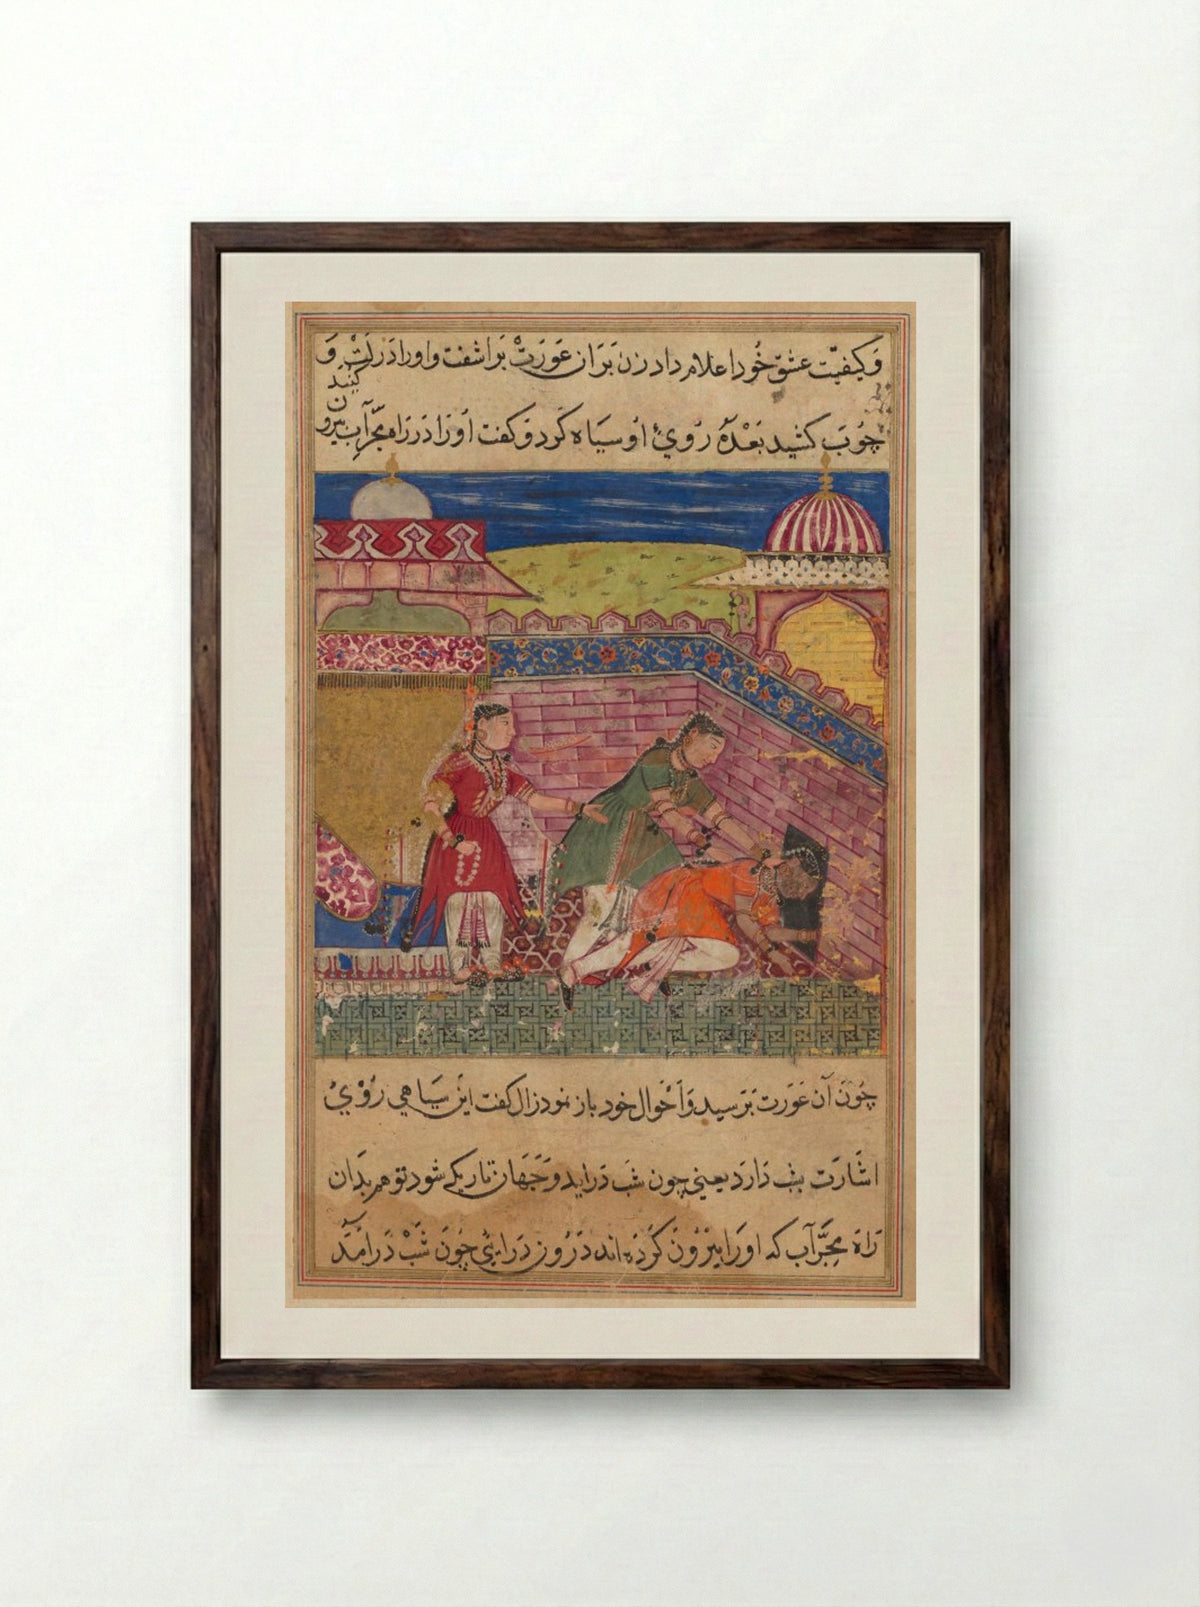 وَ کیفیّت عشق خُود اعلام داد زن بَر ان عَوَرَتْ بَراشفت و اورا دَر لَتْ وَ
چُوبَ کشید بَعْدَهٗ رُویْ اُو سیَاه کَرد وَ کفت اُورَا دَر رَاه مجَرّ آب بیرون کنند
چُونَ آن عَوَرت بَترَسید وَ اَحْوال خود باز نمود زال کفت این سیَاهی رُوْیْ
اشَارَت بشَب دَارَد یعنی چون شَب دَر اید وَ جَهَان تاریک شود تو هم بدَان
رَاهَ مَجرَّ آب که اورَا بیْرُونَ کَرْدَه اند دَرُون دَرایْی چُونَ شَبْ دَر امَدْ